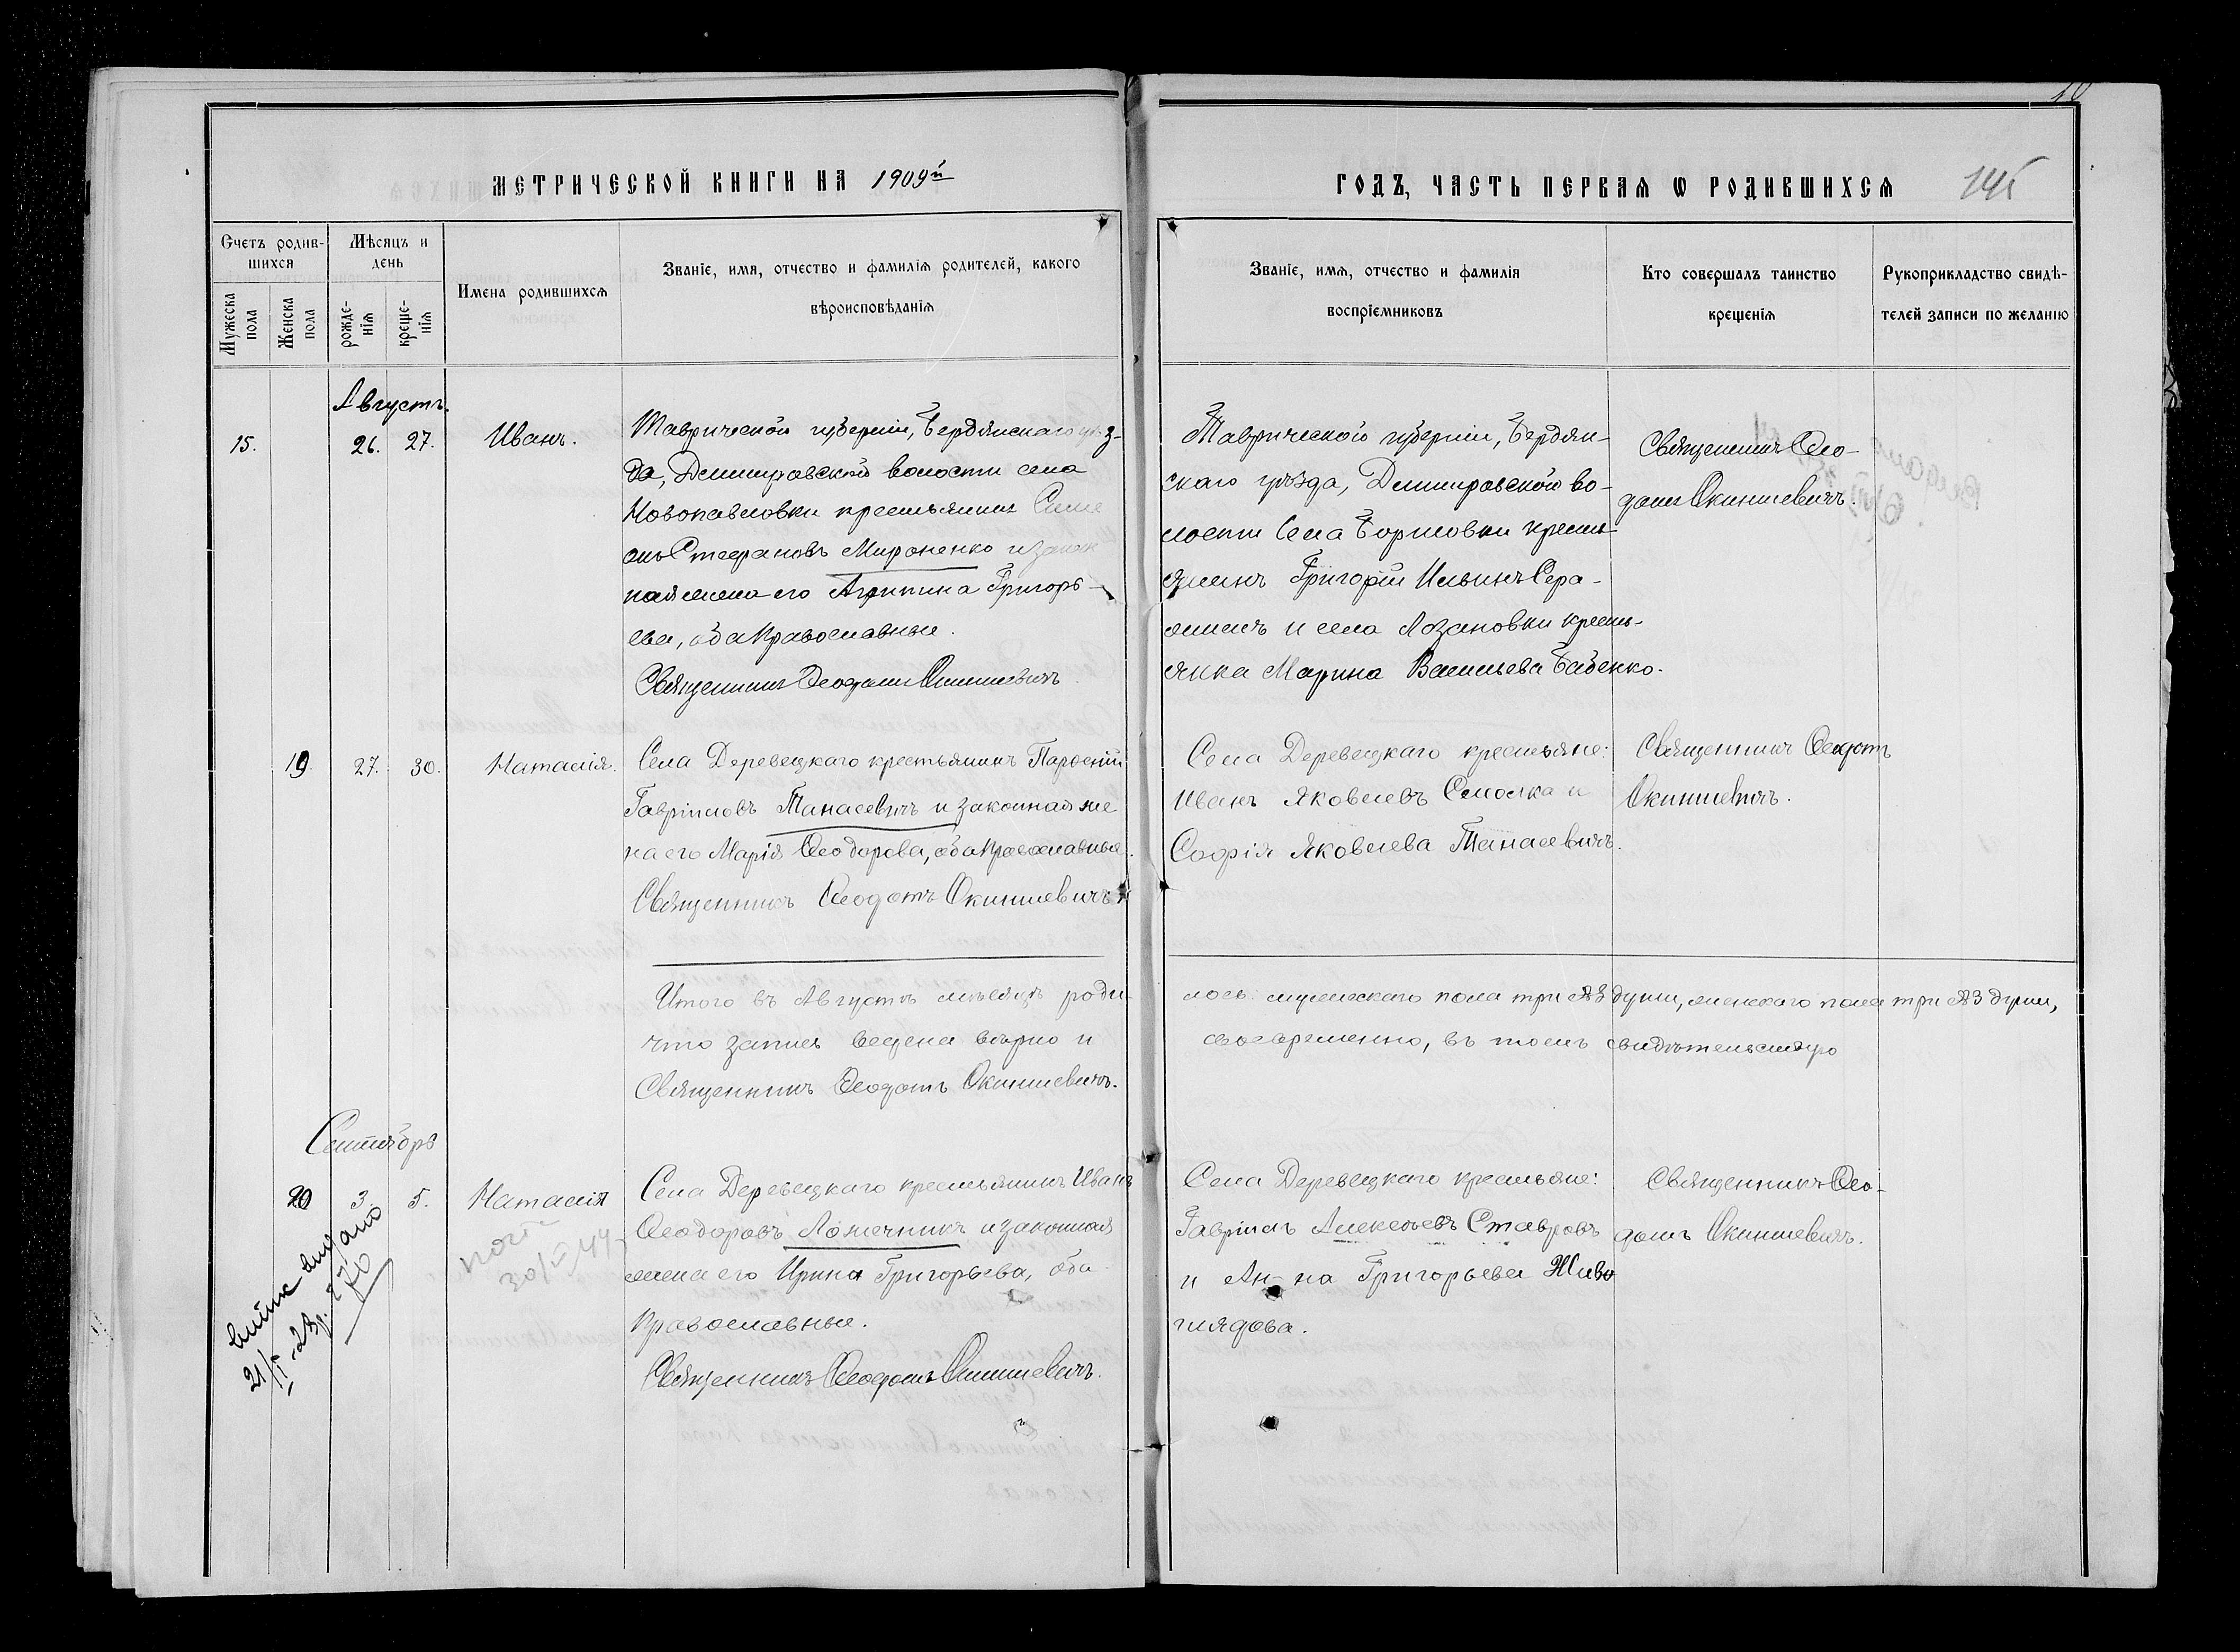 МЕТРИЧЕСКОЙ КНИГИ НА 1909й
ГОДЪ, ЧАСТЬ ПЕРВАЯ Ѡ РОДИВШИХСЯ
Счетъ родив-
шихся
Мужеска пола
Женска пола
Мѣсяцъ и
день
рожде-
нія
креще-
нія
Имена родившихся
Званіе, имя, отчество и фамилія родителей, какого
вѣроисповѣданія
Званіе, имя, отчество и фамилія
воспріемниковъ
Кто совершалъ таинство
крещенія
Рукоприкладство свидѣ-
телей записи по желанію
Августъ.
15.
26. 27.
Иванъ.
Таврической губерніи, Бердянскаго уѣз-
да, Демировской волости села
Новопавловки крестьянинъ
Стефановъ Мироненко
ная жена его Агрипина Григорь-
ева, оба православные.
Священникъ Ѳеодотъ Окиншевичъ.
Таврической губерніи, Бердян-
скаго уѣзда, Демировской во-
лости села Борисовки кресть-
янинъ Григорій Ильинъ Сера-
и села Лозановки кресть-
янка Марина Васильева Бабенко.
Священникъ Ѳео-
дотъ Окиншевичъ.
19.
27. 30.
Наталія.
Села Деревецкаго крестьянинъ Парѳеній
Гавріиловъ Танасевичъ и законная же
на его Марія Ѳеодорова, оба православные.
Священникъ Ѳеодотъ Окиншевичъ.
Села Деревецкаго крестьяне:
Иванъ Яковлевъ Смоляка и
Софія Яковлева Танасевичъ.
Священникъ Ѳеодотъ
Окиншевичъ.
Итого въ Августѣ мѣсяцѣ роди-
лось: мужескаго пола три 3 души, женскаго пола три 3 души,
что запись ведена вѣрно и
своевременно, въ томъ свидѣтельствую
Священникъ Ѳеодотъ Окиншевичъ.
Сентябрь
20
3 5.
Наталія
Села Деревецкаго крестьянинъ Иванъ
Ѳеодоровъ Ложечникъ и законная
жена его Ирина Григорьева, оба
православные.
Священникъ Ѳеодотъ Окиншевичъ.
Села Деревецкаго крестьяне:
Гавріилъ Алексѣевъ Ставровъ
и Анна Григорьева Живо
глядова.
Священникъ Ѳео-
дотъ Окиншевичъ.
видано